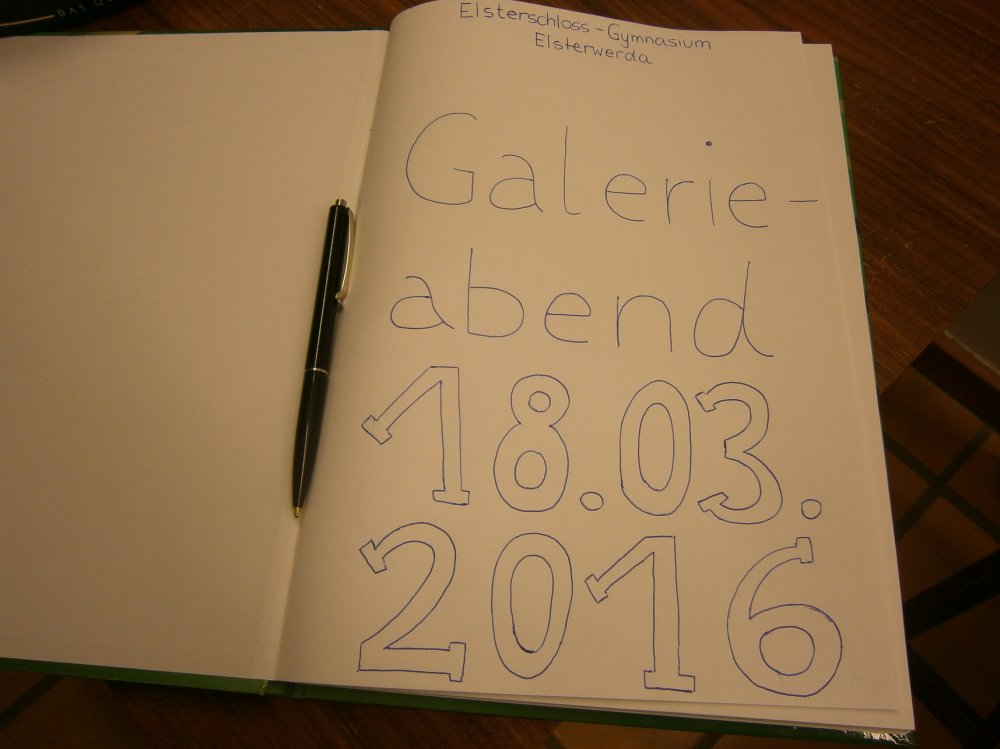 Elsterschloss-Gymnasium
Elsterwerda
Galerie-
abend
18.03.
2016